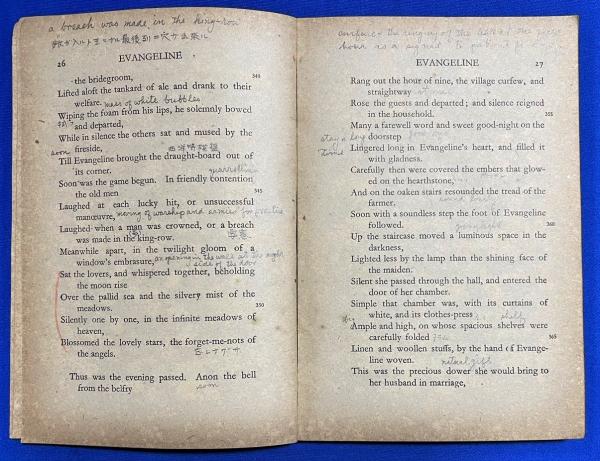 a breach was made in the king-row
26
EVANGELINE
the bridegroom,
Lifted aloft the tankard of ale and drank to their
welfare. mass of white bubbles
Wiping the foam from his lips, he solemnly bowed
and departed,
While in silence the others sat and mused by the
fireside,
soon
Till Evangeline brought the draught-board out of
its corner.
Soon was the game begun. In friendly contention
the old men
345
Laughed at each lucky hit, or unsuccessful
manœuvre, moving of warship and armies for practice
Laughed when a man was crowned, or a breach
was made in the king-row.
Meanwhile apart, in the twilight gloom of a
window's embrasure, an opening in the wall at the
side of the door
Sat the lovers, and whispered together, beholding
the moon rise
Over the pallid sea and the silvery mist of the
meadows.
350
Silently one by one, in the infinite meadows of
heaven,
Blossomed the lovely stars, the forget-me-nots of
the angels.
Thus was the evening passed. Anon the bell
from the belfry
soon
EVANGELINE
27
Rang out the hour of nine, the village curfew, and
straightway
Rose the guests and departed; and silence reigned
in the household.
355
Many a farewell word and sweet good-night on the
doorstep
stay a long
time
Lingered long in Evangeline's heart, and filled it
with gladness.
Carefully then were covered the embers that glow-
ed on the hearthstone,
And on the oaken stairs resounded the tread of the
farmer.
Soon with a soundless step the foot of Evangeline
followed.
360
Up the staircase moved a luminous space in the
darkness,
Lighted less by the lamp than the shining face of
the maiden.
Silent she passed through the hall, and entered the
door of her chamber.
Simple that chamber was, with its curtains of
white, and its clothes-press
Ample and high, on whose spacious shelves were
carefully folded
365
Linen and woollen stuffs, by the hand of Evange-
line woven.
This was the precious dower she would bring to
her husband in marriage,